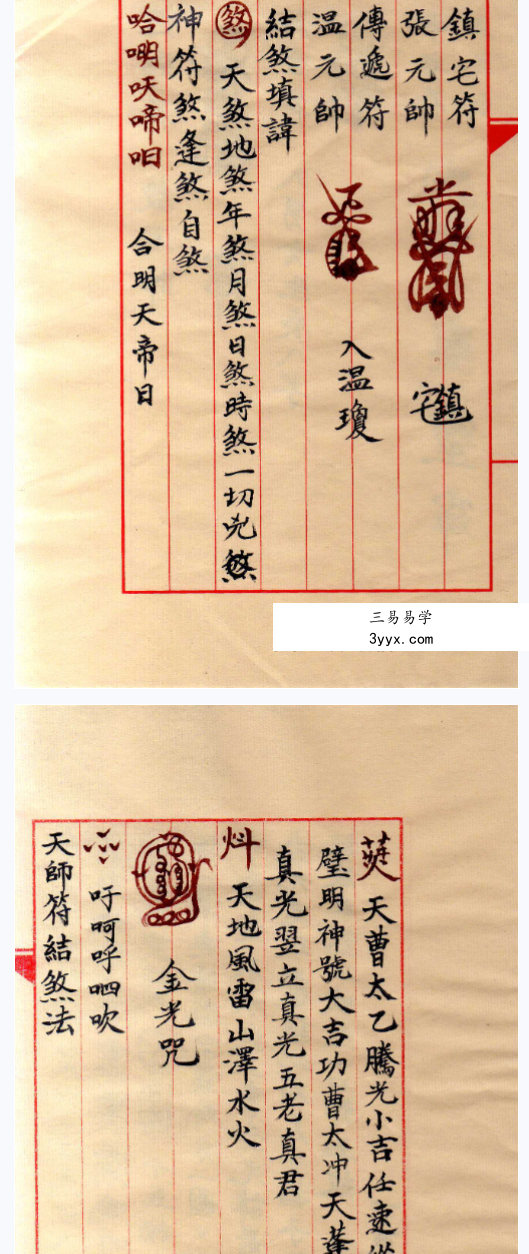 鎮宅符
張元帥
鎮宅
傳遞符
溫元帥
入溫瓊
結煞填諱
煞 天煞地煞年煞月煞日煞時煞一切兇煞
神符煞逢煞自煞
哈明吠啼咱 合明天帝日
三易易学
3yyx.com
天曹太乙騰光小吉任速從
璧明神號大吉功曹太冲天蓬
真光翌立真光五老真君
天地風雷山澤水火
金光咒
吁呵呼呬吹
天師符結煞法